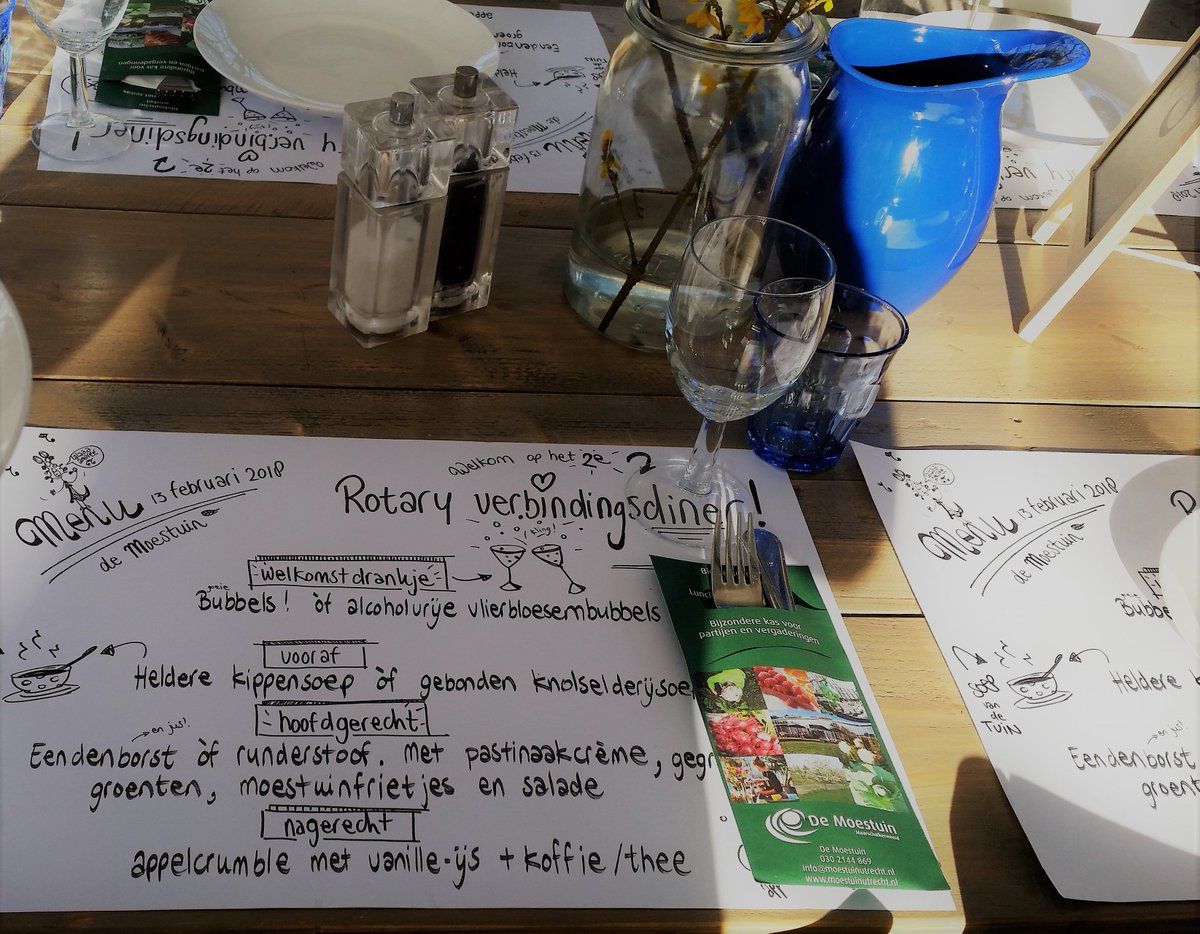 Menu 13 februari 2018
de Moestuin
Welkom op het 2e
Rotary verbindingsdiner!
bling!
welkomstdrankje
Bubbels! òf alcoholvrije vlierbloesembubbels
vooraf
Heldere kippensoep òf gebonden knolselderijsoe
hoofdgerecht
en jus!
Eendenborst òf runderstoof. Met pastinaakcrème, gegr
groenten, moestuinfrietjes en salade
nagerecht
appelcrumble met vanille-ijs + koffie/thee
Bijzondere kas voor
partijen en vergaderingen
De Moestuin
Maarschalkerweerd
De Moestuin
030 2144 869
info@moestuinutrecht.nl
www.moestuinutrecht.nl
Menu 13 februari 2018
de Moestuin
Bubbe
soep
van
de
TUIN
Heldere
en jus!
Eendenborst
groent
verbindingsdiner!
Welkom op het 2e
de Moestuin